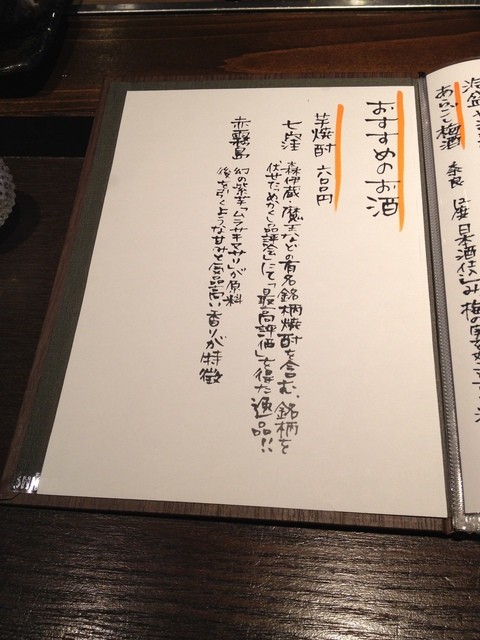 おすすめのお酒
芋焼酎 六百円
七窪 森伊蔵・魔王などの有名銘柄焼酎を含む、銘柄を
伏せた めかくし品評会にて「最高評価」を得た逸品!!
赤霧島 幻の紫芋「ムラサキマサリ」が原料
後を引くような甘みと気品高い香りが特徴
あらごし梅酒 奈良